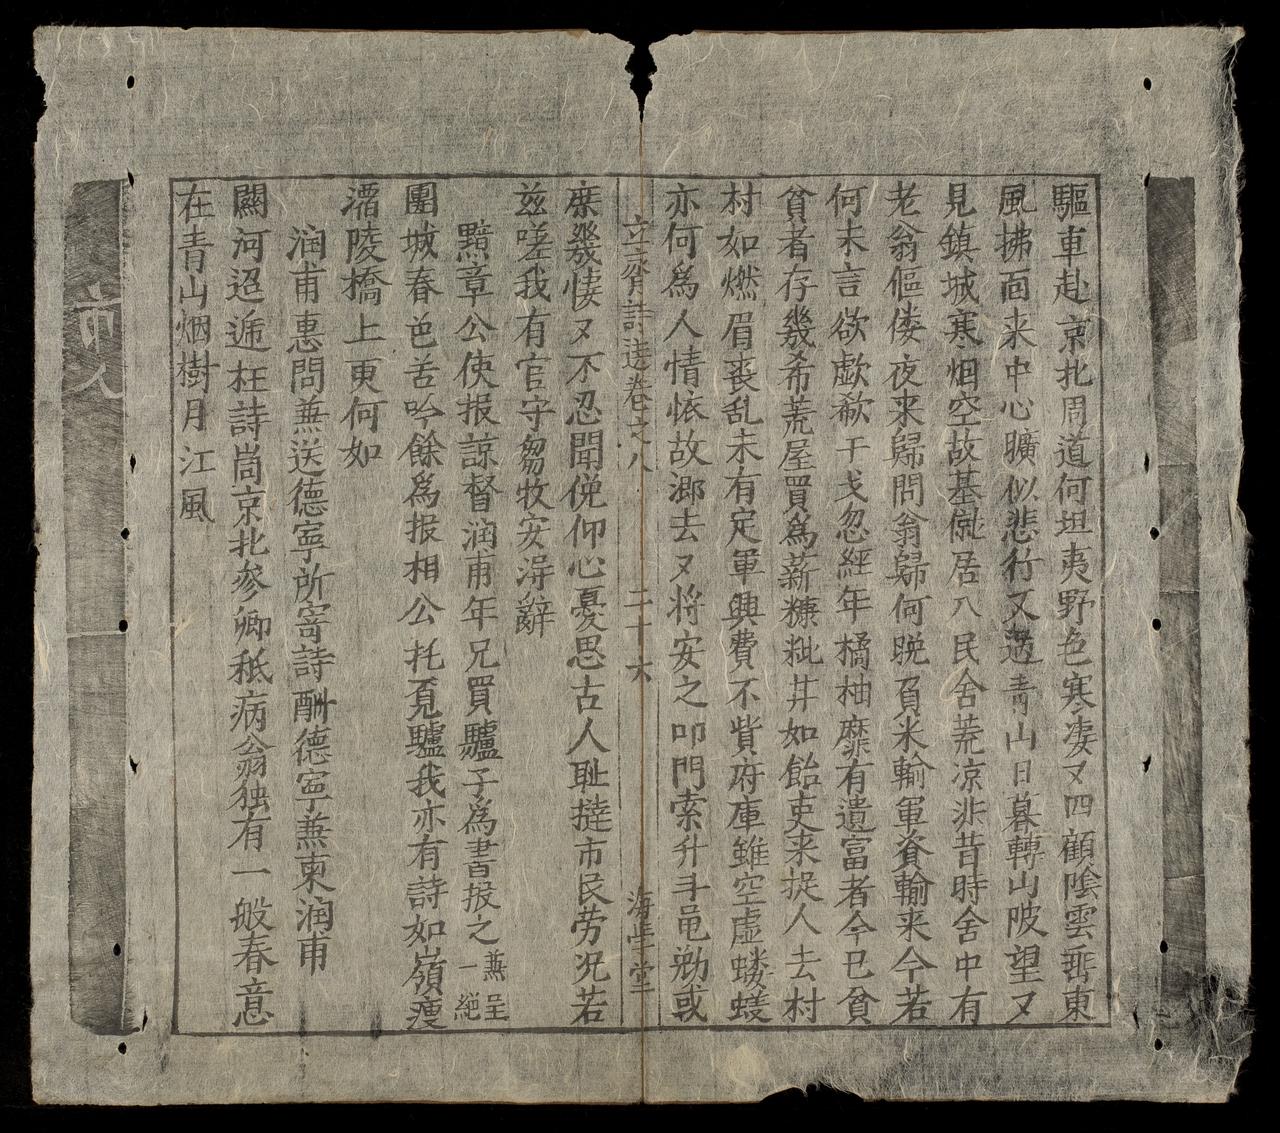 驅車赴京北周道何坦夷野色寒凄又四顧陰雲垂東
風拂面来中心曠似悲行又過青山日暮轉山陂望又
見鎮城寒烟空故基僦居八民舍荒凉非昔時舍中有
老翁傴偻夜来歸問翁歸何晩負米輸軍資輸来今若
何未言欲歔欷干戈忽經年橘柚靡有遺富者今已貧
貧者存幾希荒屋買爲薪糠粃甘如飴吏来捉人去村
村如燃眉喪乱未有定軍興費不貲府庫雖空虚螻蟻
亦何爲人情依故鄉去又将安之叩門索升斗黽勉或
立齋詩选卷之八 二十六 海學堂
庶幾悽又不忍聞俛仰心憂思古人耻撻市民劳况若
兹嗟我有官守芻牧安淂辭
黯章公使报諒督润甫年兄買驢子爲書报之兼呈一絕
團城春色苦吟餘爲报相公托覔驢我亦有詩如嶺瘦
灞陵橋上更何如
润甫惠問兼送德寧所寄詩酬德寧兼柬润甫
關河迢逓枉詩崗京北参卿秖病翁独有一般春意
在青山烟樹月江風